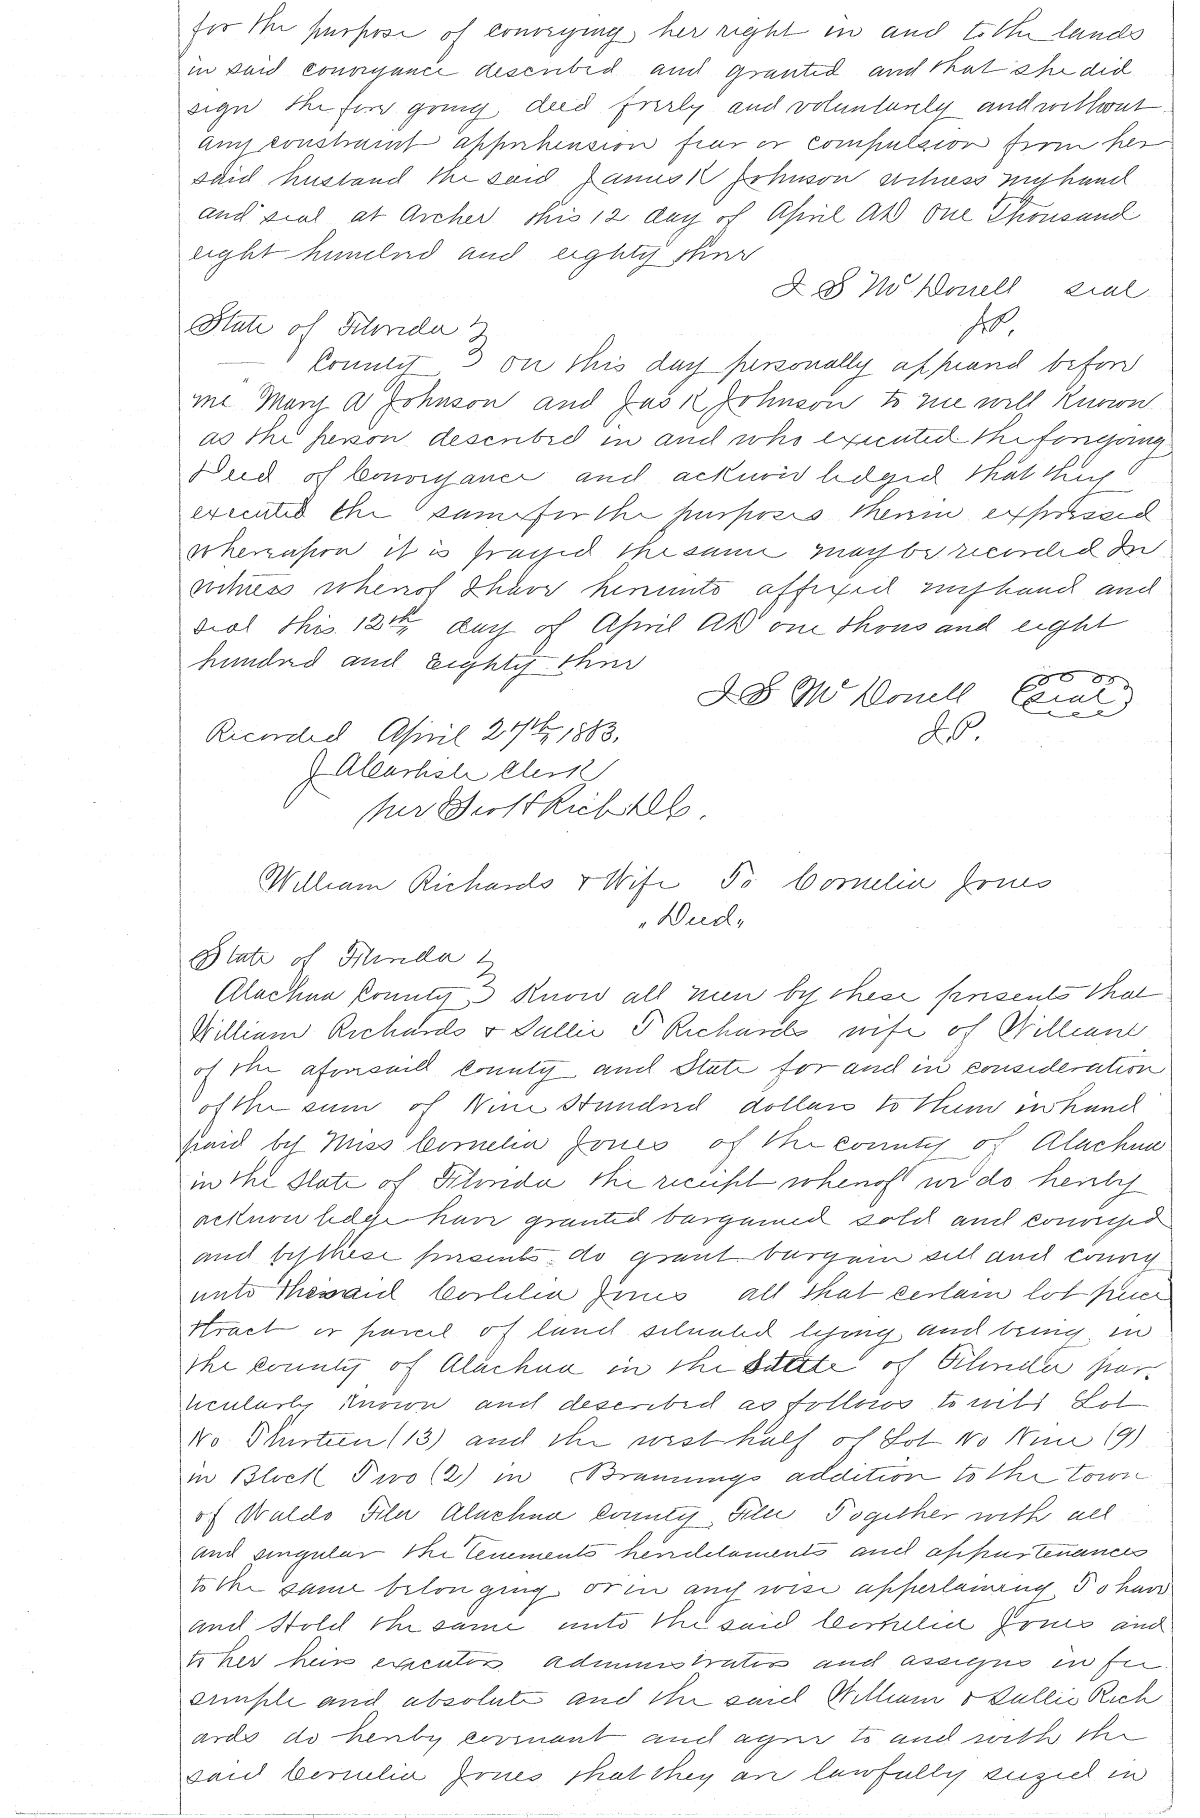 for the purpose of conveying her right in and to the lands
in said conveyance described and granted and that she did
sign the fore going deed freely and voluntarily and without
any constraint apprehension fear or compulsion from her
said husband the said James K Johnson witness my hand
and seal at Archer this 12 day of April AD One Thousand
eight hundred and eighty three
I S McDonell seal
State of Florida } JP.
County } On this day personally appeared before
me Mary A Johnson and Jas K Johnson to me well Known
as the person described in and who executed the foregoing
Deed of Conveyance and acknowledged that they
executed the same for the purposes therein expressed
whereupon it is prayed the same may be recorded In
witness whereof I have hereunto affixed my hand and
seal this 12th day of April AD one thousand eight
hundred and Eighty three
I S McDonell Seal
Recorded April 27th 1883. J.P.
J A Carlisle Clerk
per Rich DC.
William Richards & Wife To Cornelia Jones
"Deed"
State of Florida }
Alachua County } Know all men by these presents that
William Richards & Sallie T Richards wife of William
of the aforesaid county and State for and in consideration
of the sum of Nine Hundred dollars to them in hand
paid by Miss Cornelia Jones of the county of Alachua
in the State of Florida the receipt whereof we do hereby
acknowledge have granted bargained sold and conveyed
and by these presents do grant bargain sell and convey
unto the said Corlelia Jones all that certain lot piece
tract or parcel of land situated lying and being in
the county of Alachua in the State of Florida par-
ticularly known and described as follows to wit: Lot
No Thirteen (13) and the west half of Lot No Nine (9)
in Block Two (2) in Brannings addition to the town
of Waldo Fla Alachua County Fla Together with all
and singular the tenements hereditaments and appurtenances
to the same belonging or in any wise appertaining To have
and Hold the same unto the said Cornelia Jones and
to her heirs executors administrators and assigns in fee
simple and absolute and the said William & Sallie Rich
ards do hereby covenant and agree to and with the
said Cornelia Jones that they are lawfully seized in